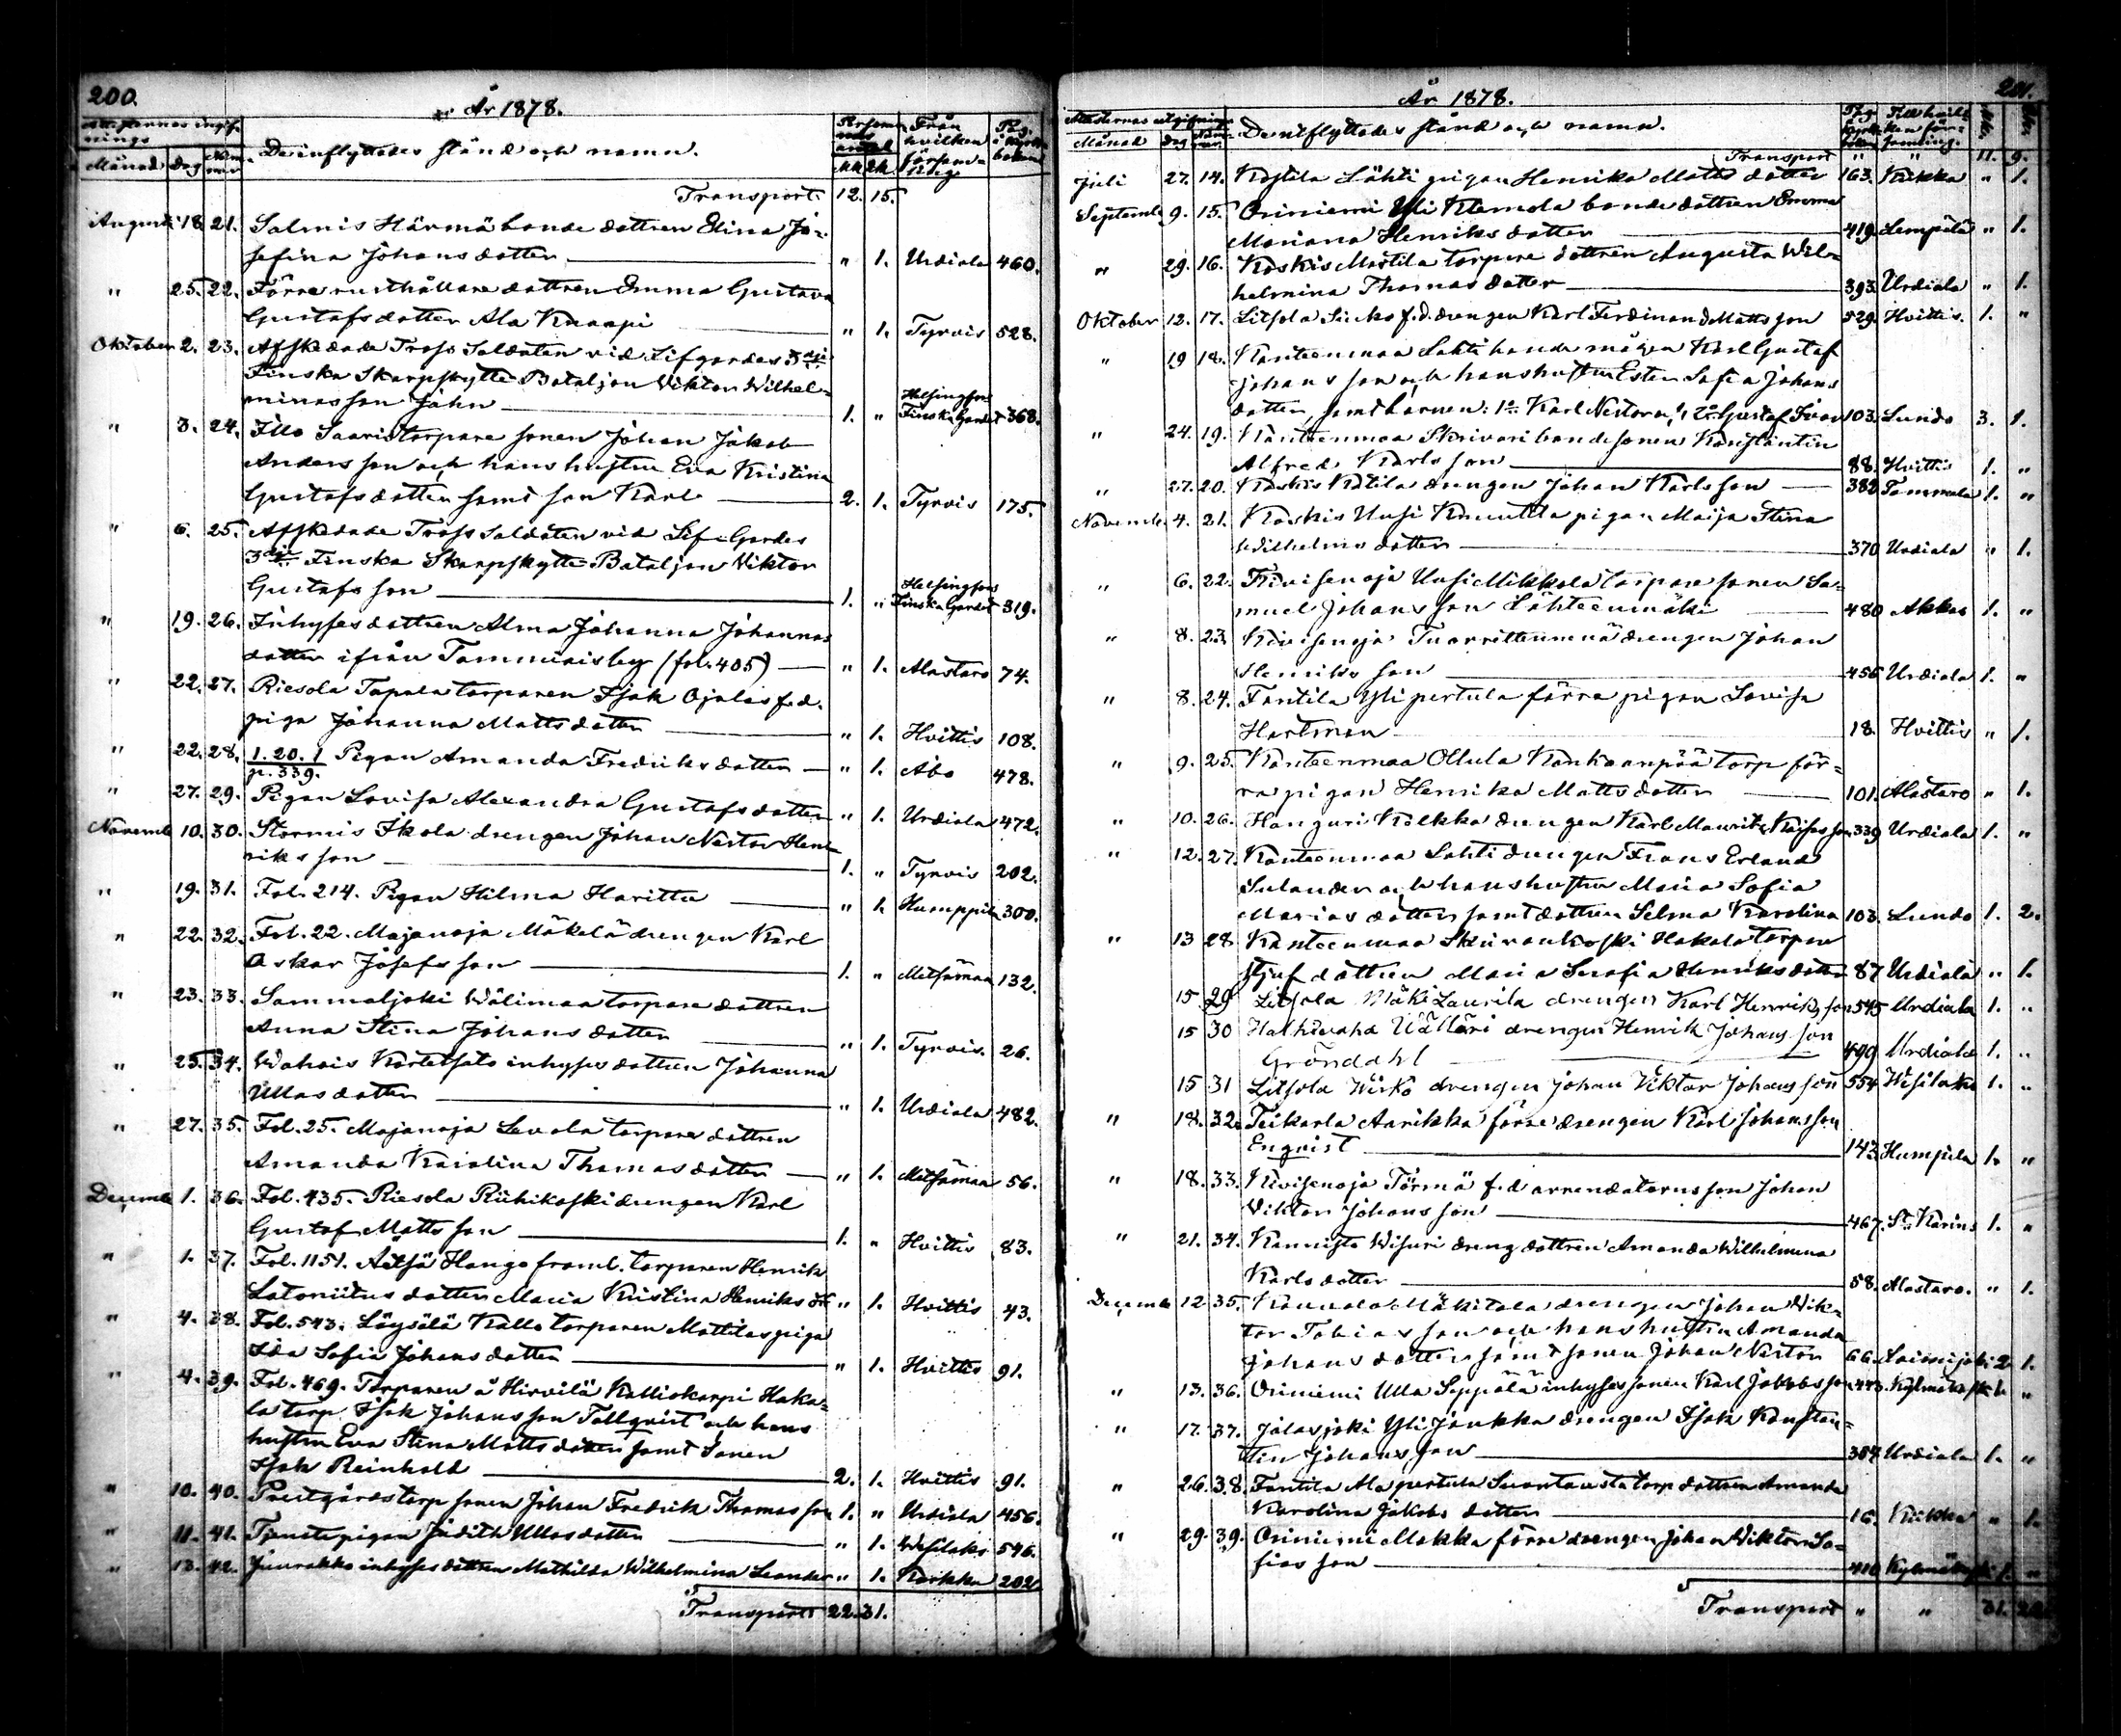 200.
År 1878.
Månad Dag
De inflyttades stånd och namn.
Från hvilken
Mk. Qk.
Transport 12. 15.
Augusti 18. 21. Salmis Härmä bonde dottren Edina Jo-
sefina Johansdotter " 1. Urdiala 460.
" 25. 22. Förre rusthållare dottren Emma Gustava
Gustafsdotter Ala Knaapi " 1. Tyrvis 528.
Oktober 2. 23. Afskedade Tross Soldaten vid Lifgardes 3dje
Finska Skarpskytte Bataljon Viktor Wilhel-
minasson John 1. " Helsingfors Finska Gardet 368.
" 3. 24. Illo Saaris torpare sonen Johan Jakob
Andersson och hans hustru Eva Kristina
Gustafsdotter samt son Karl 2. 1. Tyrvis 175.
" 6. 25. Afskedade Tross Soldaten vid Lif Gardes
3dje Finska Skarpskytte Bataljon Viktor
Gustafsson 1. " Helsingfors Finska Gardet 319.
" 19. 26. Inhyses dottren Alma Johanna Johannes
dotter ifrån Tammiais by (fol. 405) " 1. Alastaro 74.
" 22. 27. Riesola Tapala torparen Isak Ojalas f.d.
piga Johanna Mattsdotter " 1. Hvittis 108.
" 22. 28. 1. 20. 1 p. 339. Pigan Amanda Fredriksdotter " 1. Åbo 478.
" 27. 29. Pigan Lovisa Alexandra Gustafsdotter " 1. Urdiala 472.
Novemb. 10. 30. Stormis Ikola drengen Johan Nestor Hen-
riksson 1. " Tyrvis 202.
" 19. 31. Fol. 214. Pigan Hilma Haritta " 1. Humppila 300.
" 22. 32. Fol. 22. Majanoja Mäkelä drengen Karl
Oskar Josefsson 1. " Metsämaa 132.
" 23. 33. Sammaljoki Wälimaa torpare dottren
Anna Stina Johansdotter " 1. Tyrvis. 26.
" 25. 34. Wahois inhyses dottren Johanna
Ullasdotter " 1. Urdiala 482.
" 27. 35. Fol. 25. Majanoja Levola torpare dottren
Amanda Karolina Thomasdotter " 1. Metsämaa 56.
Decemb. 1. 36. Fol. 435. Riesola Riihikoski drengen Karl
Gustaf Mattsson 1. " Hvittis 83.
" 1. 37. Fol. 1151. Aetsä Hango framl. torparen Henrik
Latoniitus dotter Maria Kristina Henriks dr " 1. Hvittis 43.
" 4. 38. Fol. 543. Löysälä Kallo torparen Mattilas piga
Ida Sofia Johansdotter " 1. Hvittis 91.
" 4. 39. Fol. 469. Torparen å Hirvilä Kalliokorpi Haka-
la torp Isak Johansson Tallqvist och hans
hustru Eva Stina Mattsdotter samt sonen
Isak Reinhold 2. 1. Hvittis 91.
" 10. 40. Prestgårds torp sonen Johan Fredrik Thomasson 1. " Urdiala 456.
" 11. 41. Tjenstepigan Judith Ullasdotter " 1. Wesilaks 546.
" 13. 42. Juurakko inhyses dottren Mathilda Wilhelmina Leander " 1. Karkku 202
Transport 22. 31.
201.
År 1878.
Attesternas utgifnings
Månad Dag
De utflyttades stånd och namn.
Transport " " 11. 9.
Juli 27. 14. Kojtila Lähti pigan Henrika Matts dotter 163. Kiikka " 1.
Septemb. 9. 15. Oriniemi Yli Klemola bonde dottren Emma
Mariana Henriksdotter 419. Lempälä " 1.
" 29. 16. Koskis Mattila torpare dottren Augusta Wil-
helmina Thomasdotter 393. Urdiala " 1.
Oktober 12. 17. Liitsola f.d. drengen Karl Ferdinand Mattsson 529. Hvittis. 1. "
" 19 18. Kanteenmaa Lahti bonde mågen Karl Gustaf
Johansson och hans hustru Ester Sofia Johans
dotter, samt barnen: 1o Karl Nestor, 2o Gustaf Ivar 103. Lundo 3. 1.
" 24. 19. Kanteenmaa Skrivari bonde sonen Konstantin
Alfred Karlsson 88. Hvittis 1. "
" 27. 20. Koskis Kätila drengen Johan Karlsson 382 Tammela 1. "
Novemb. 4. 21. Koskis Uusi pigan Maija Stina
Wilhelmsdotter 370 Urdiala " 1.
" 6. 22. Kivisenoja Uusi Mikkola torpare sonen Sa-
muel Johansson Lähteenmäki 480 Akkas 1. "
" 8. 23. Kivisenoja drengen Johan
Henriksson 456 Urdiala 1. "
" 8. 24. Fantila Yli pertula förra pigan Lovisa
Hartman 18. Hvittis " 1.
" 9. 25. Kanteenmaa Ollula Kankaanpää torp för-
ra pigan Henrika Mattsdotter 101. Alastaro " 1.
" 10. 26. Hanguri Kalkka drengen Karl Mauritz Kaisasson 339 Urdiala 1. "
" 12. 27. Kanteenmaa Lahti drengen Frans Erland
Sulander och hans hustru Maria Sofia
Mariasdotter samt dottren Selma Karolina 103. Lundo 1. 2.
" 13 28 Kanteenmaa Hakala torpare
styf dottren Maria Serafia Henriksdotter 87 Urdiala " 1.
15. 29 Liitsola Mäki Laurila drengen Karl Henriksson 545 Urdiala 1. "
15 30 Haihivaha Uotari drengen Henrik Johansson
Gröndahl 499 Urdiala 1. "
15 31 Liitsola Wirkö drengen Johan Viktor Johansson 554 Wesilaks 1. "
" 18. 32. Teikarla Anrikka förre drengen Karl Johansson
Enqvist 143 Humpila 1. "
" 18. 33. Kivisenoja Törmä f.d. arrendatorns son Johan
Viktor Johansson 467. St. Karins 1. "
" 21. 34. Kannisto Wisuri dreng dottren Amanda Wilhelmina
Karlsdotter 58. Alastaro. " 1.
Decemb. 12 35. Kannala Mäkitalo drengen Johan Wik-
tor Tobiasson och hans hustru Amanda
Johansdotter samt sonen Johan Nestor 66. Loimijoki 2. 1.
" 13. 36. Oriniemi Ulla Seppälä inhyses sonen Karl Jakobsson 443. Kylmäkoski 1. "
" 17. 37. Jalasjoki Yli Jaukka drengen Isak Konstan-
tin Johansson 354 Urdiala 1. "
" 26. 38. Fantila Ala pertula torp dottren Amanda
Karolina Jakobs dotter 16. Kiikka " 1.
" 29. 39. Oriniemi Mokka förre drengen Johan Wiktor So-
fiasson 410 Kylmäkoski 1. "
Transport " " 31.